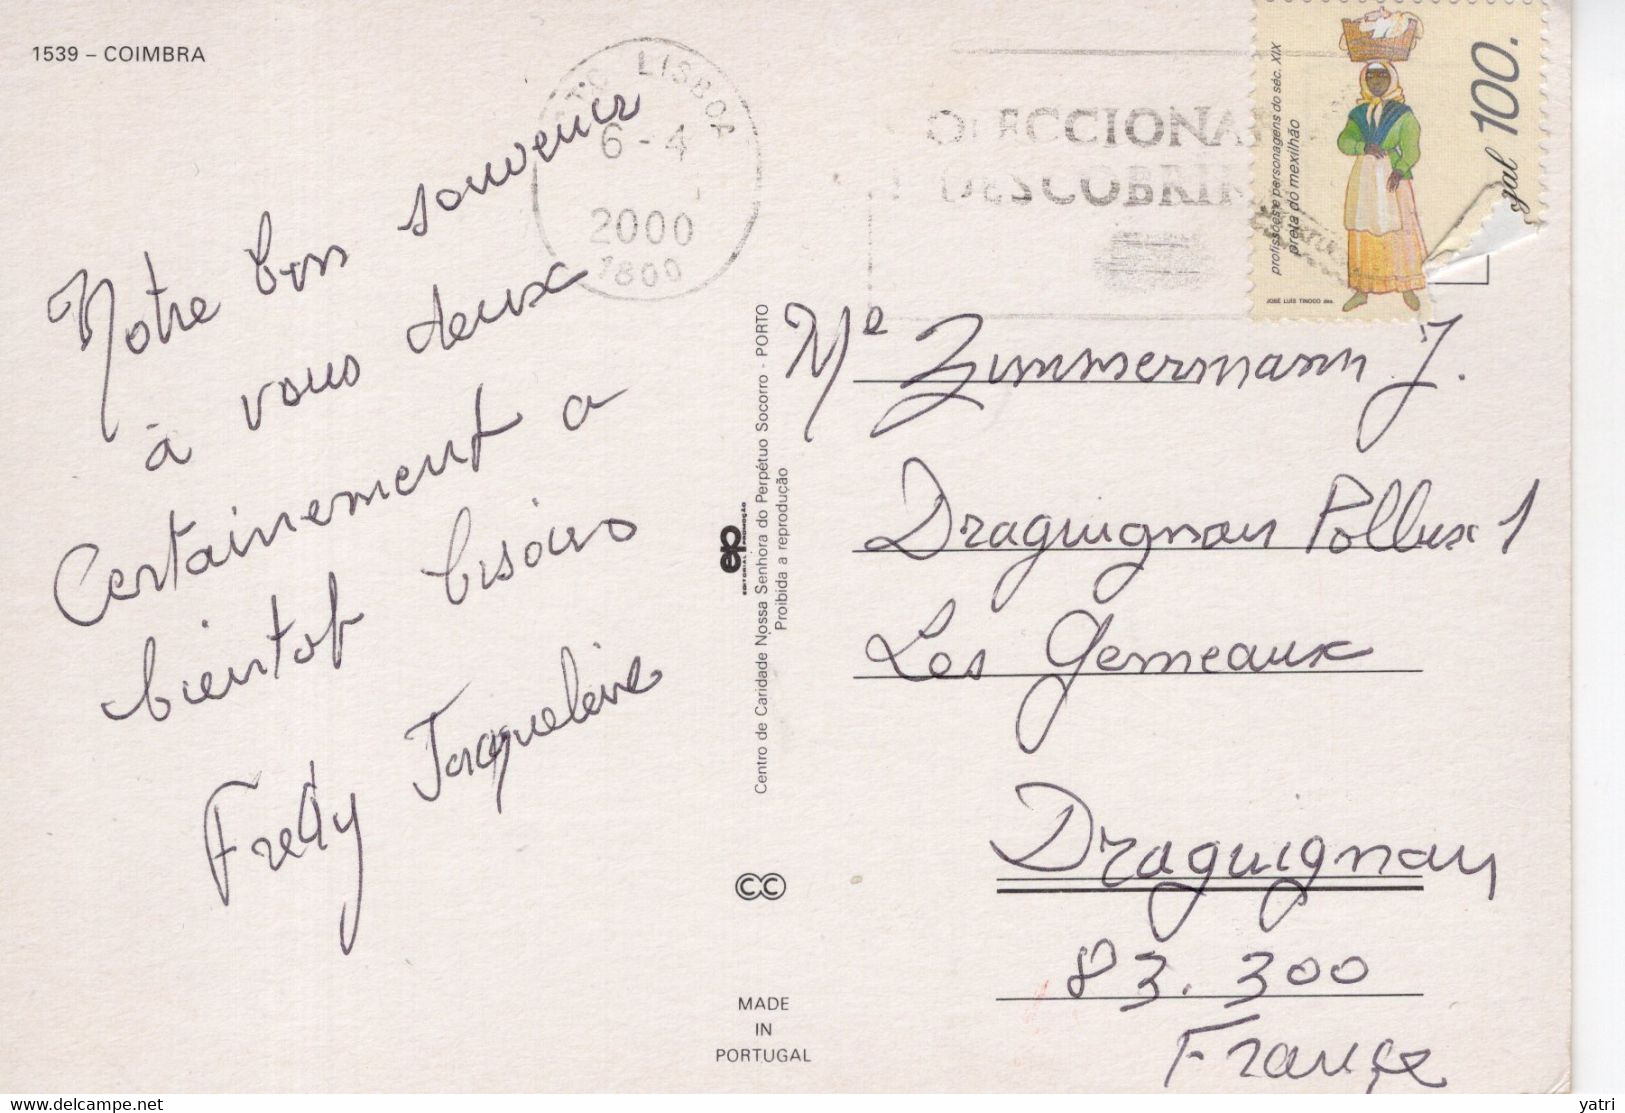 1539 – COIMBRA
Notre bon souvenir
à vous deux
Certainement a
bientot bisous
Fredy Jaqueline
LISBOA
6-4
2000
1800
OLECCIONA
DESCOBRIR
profissões e personagens do séc. XIX
preta do mexilhão
JOSÉ LUÍS TINOCO des.
gal 100.
Centro de Caridade Nossa Senhora do Perpétuo Socorro - PORTO
Proibida a reprodução
ep
EDITORIAL PROMOÇÃO
CC
MADE
IN
PORTUGAL
Me Zimmermann J.
Draguignan Pollux 1
Les Gemeaux
Draguignan
83.300
France
delcampe.net
yatri